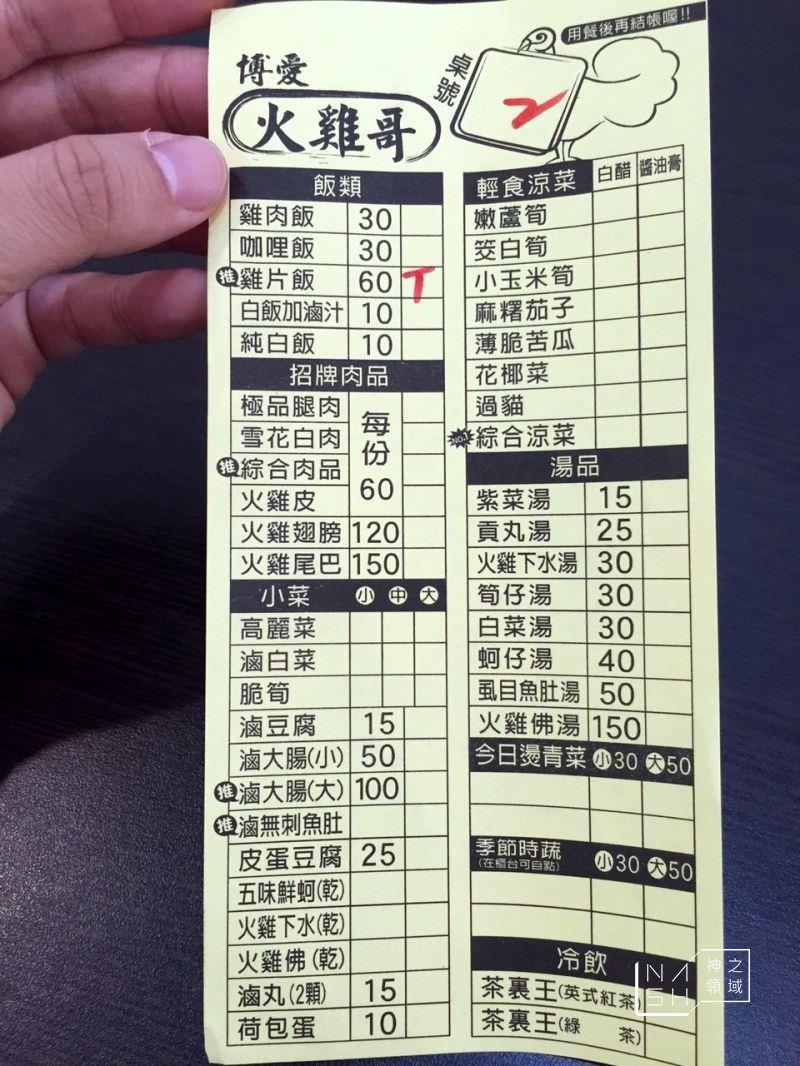 用餐後再結帳喔!!
博愛
火雞哥
桌號
2
飯類
雞肉飯 30
咖哩飯 30
推 雞片飯 60 T
白飯加滷汁 10
純白飯 10
招牌肉品
極品腿肉
雪花白肉
推 綜合肉品
火雞皮
每份60
火雞翅膀 120
火雞尾巴 150
小菜 小 中 大
高麗菜
滷白菜
脆筍
滷豆腐 15
滷大腸(小) 50
推 滷大腸(大) 100
推 滷無刺魚肚
皮蛋豆腐 25
五味鮮蚵(乾)
火雞下水(乾)
火雞佛(乾)
滷丸(2顆) 15
荷包蛋 10
輕食涼菜 白醋 醬油膏
嫩蘆筍
筊白筍
小玉米筍
麻糬茄子
薄脆苦瓜
花椰菜
過貓
綜合涼菜
湯品
紫菜湯 15
貢丸湯 25
火雞下水湯 30
筍仔湯 30
白菜湯 30
蚵仔湯 40
虱目魚肚湯 50
火雞佛湯 150
今日燙青菜 小30 大50
季節時蔬 小30 大50
(在櫃台可自點)
冷飲
茶裏王(英式紅茶)
茶裏王(綠 茶)
NASH
神之領域